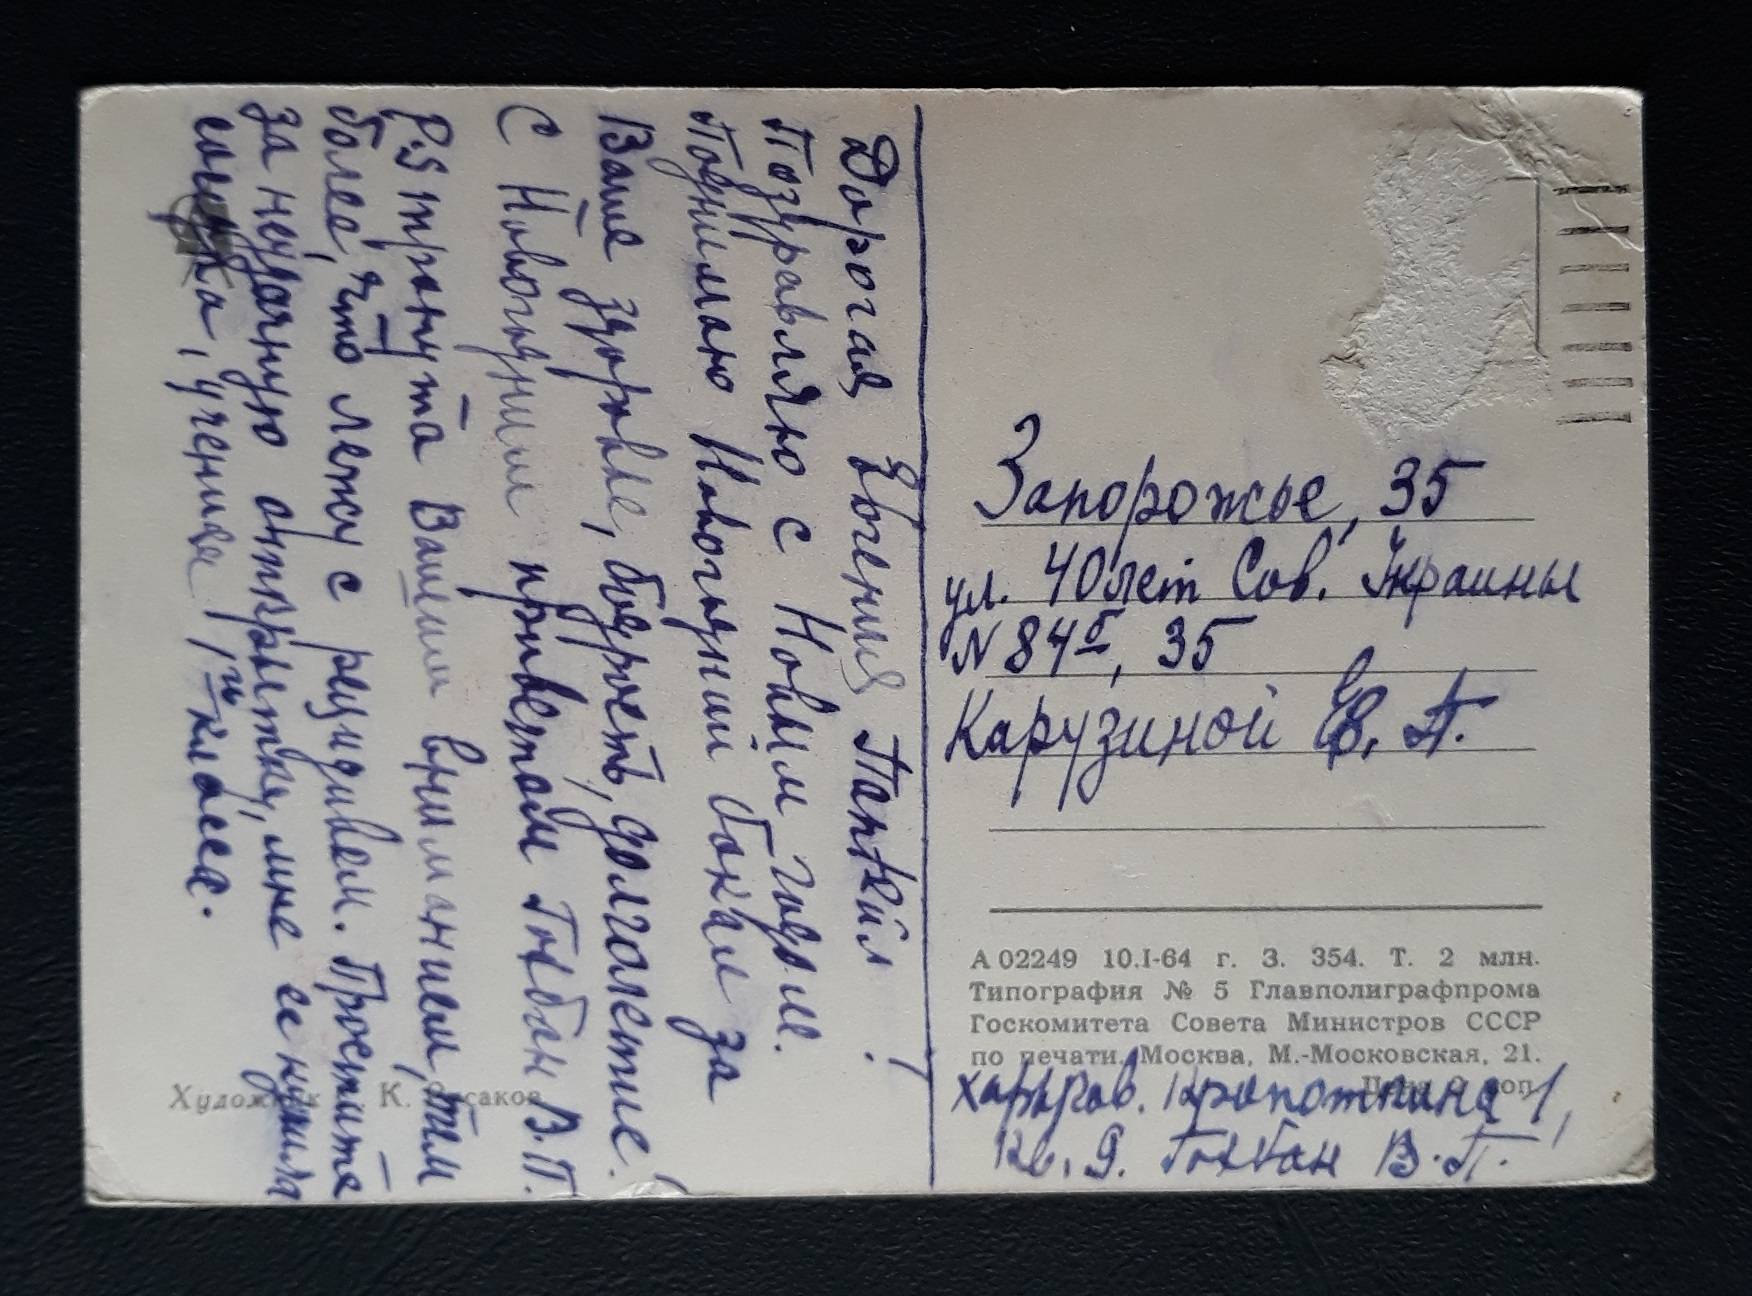 Дорогая Евгения Пантейл!
Поздравляю с Новым годом.
Поднимаю Новогодний бокал за
Ваше здоровье, бодрость, долголетие.
С Новогодним приветом Гольбан В.П.
P.S тронута Вашим вниманием, тем
более, что лежу с рецидивом. Простите
за неудачную открытку, мне ее купила
соседка, ученица 1й класса.
Художник К.
Запорожье, 35
ул. 40 лет Сов. Украины
N 84б, 35
Карузиной Е. П.
А 02249 10.I-64 г. З. 354. Т. 2 млн.
Типография № 5 Главполиграфпрома
Госкомитета Совета Министров СССР
по печати. Москва, М.-Московская, 21.
Цена коп.
Харьков. Кропоткина 1,
кв. 9. Гольбан В. П.